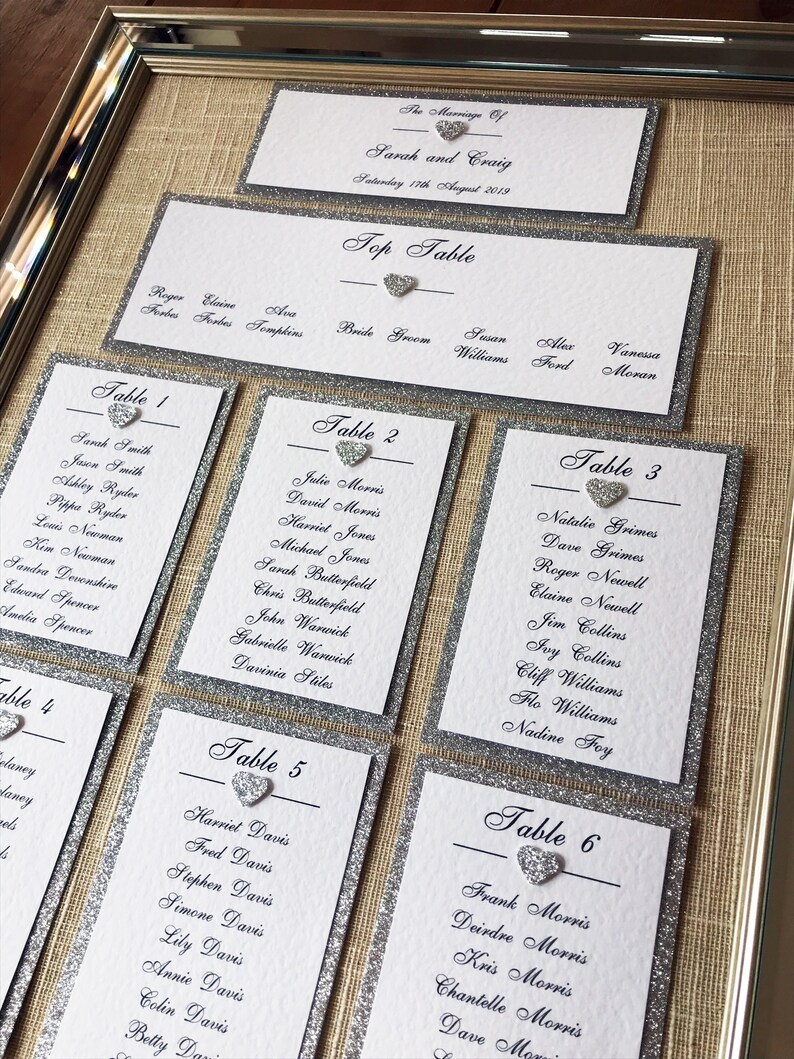 The Marriage Of
Sarah and Craig
Saturday 17th August 2019
Top Table
Roger Forbes
Elaine Forbes
Ava Tompkins
Bride
Groom
Susan Williams
Alex Ford
Vanessa Moran
Table 1
Sarah Smith
Jason Smith
Ashley Ryder
Pippa Ryder
Louis Newman
Kim Newman
Sandra Devonshire
Edward Spencer
Amelia Spencer
Table 2
Julie Morris
David Morris
Harriet Jones
Michael Jones
Sarah Butterfield
Chris Butterfield
John Warwick
Gabrielle Warwick
Davinia Stiles
Table 3
Natalie Grimes
Dave Grimes
Roger Newell
Elaine Newell
Jim Collins
Ivy Collins
Cliff Williams
Flo Williams
Nadine Foy
Table 4
Table 5
Harriet Davis
Fred Davis
Stephen Davis
Simone Davis
Lily Davis
Annie Davis
Colin Davis
Betty Davis
Table 6
Frank Morris
Deirdre Morris
Kris Morris
Chantelle Morris
Dave Morris